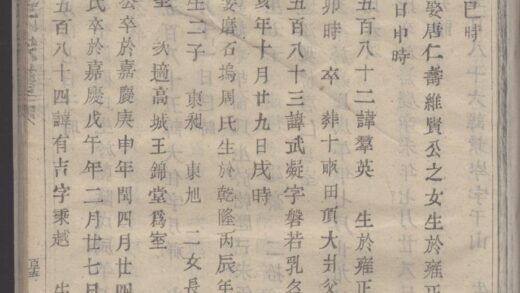 巳時
娶唐仁壽維賢公之女生於雍正
日申時
五百八十二諱羣英 生於雍正
卯時 卒 葬十畝田頂大圤父
五百八十三諱武凝字磐若乳名
亥年十月廿九日戌時
娶磨石塢周氏生於乾隆丙辰年
生二子 東昶 東旭 二女長
次適高城王錦堂爲室
公卒於嘉慶庚申年閏四月廿四
氏卒於嘉慶戊午年二月廿七日
五百八十四諱有吉字秉越 生